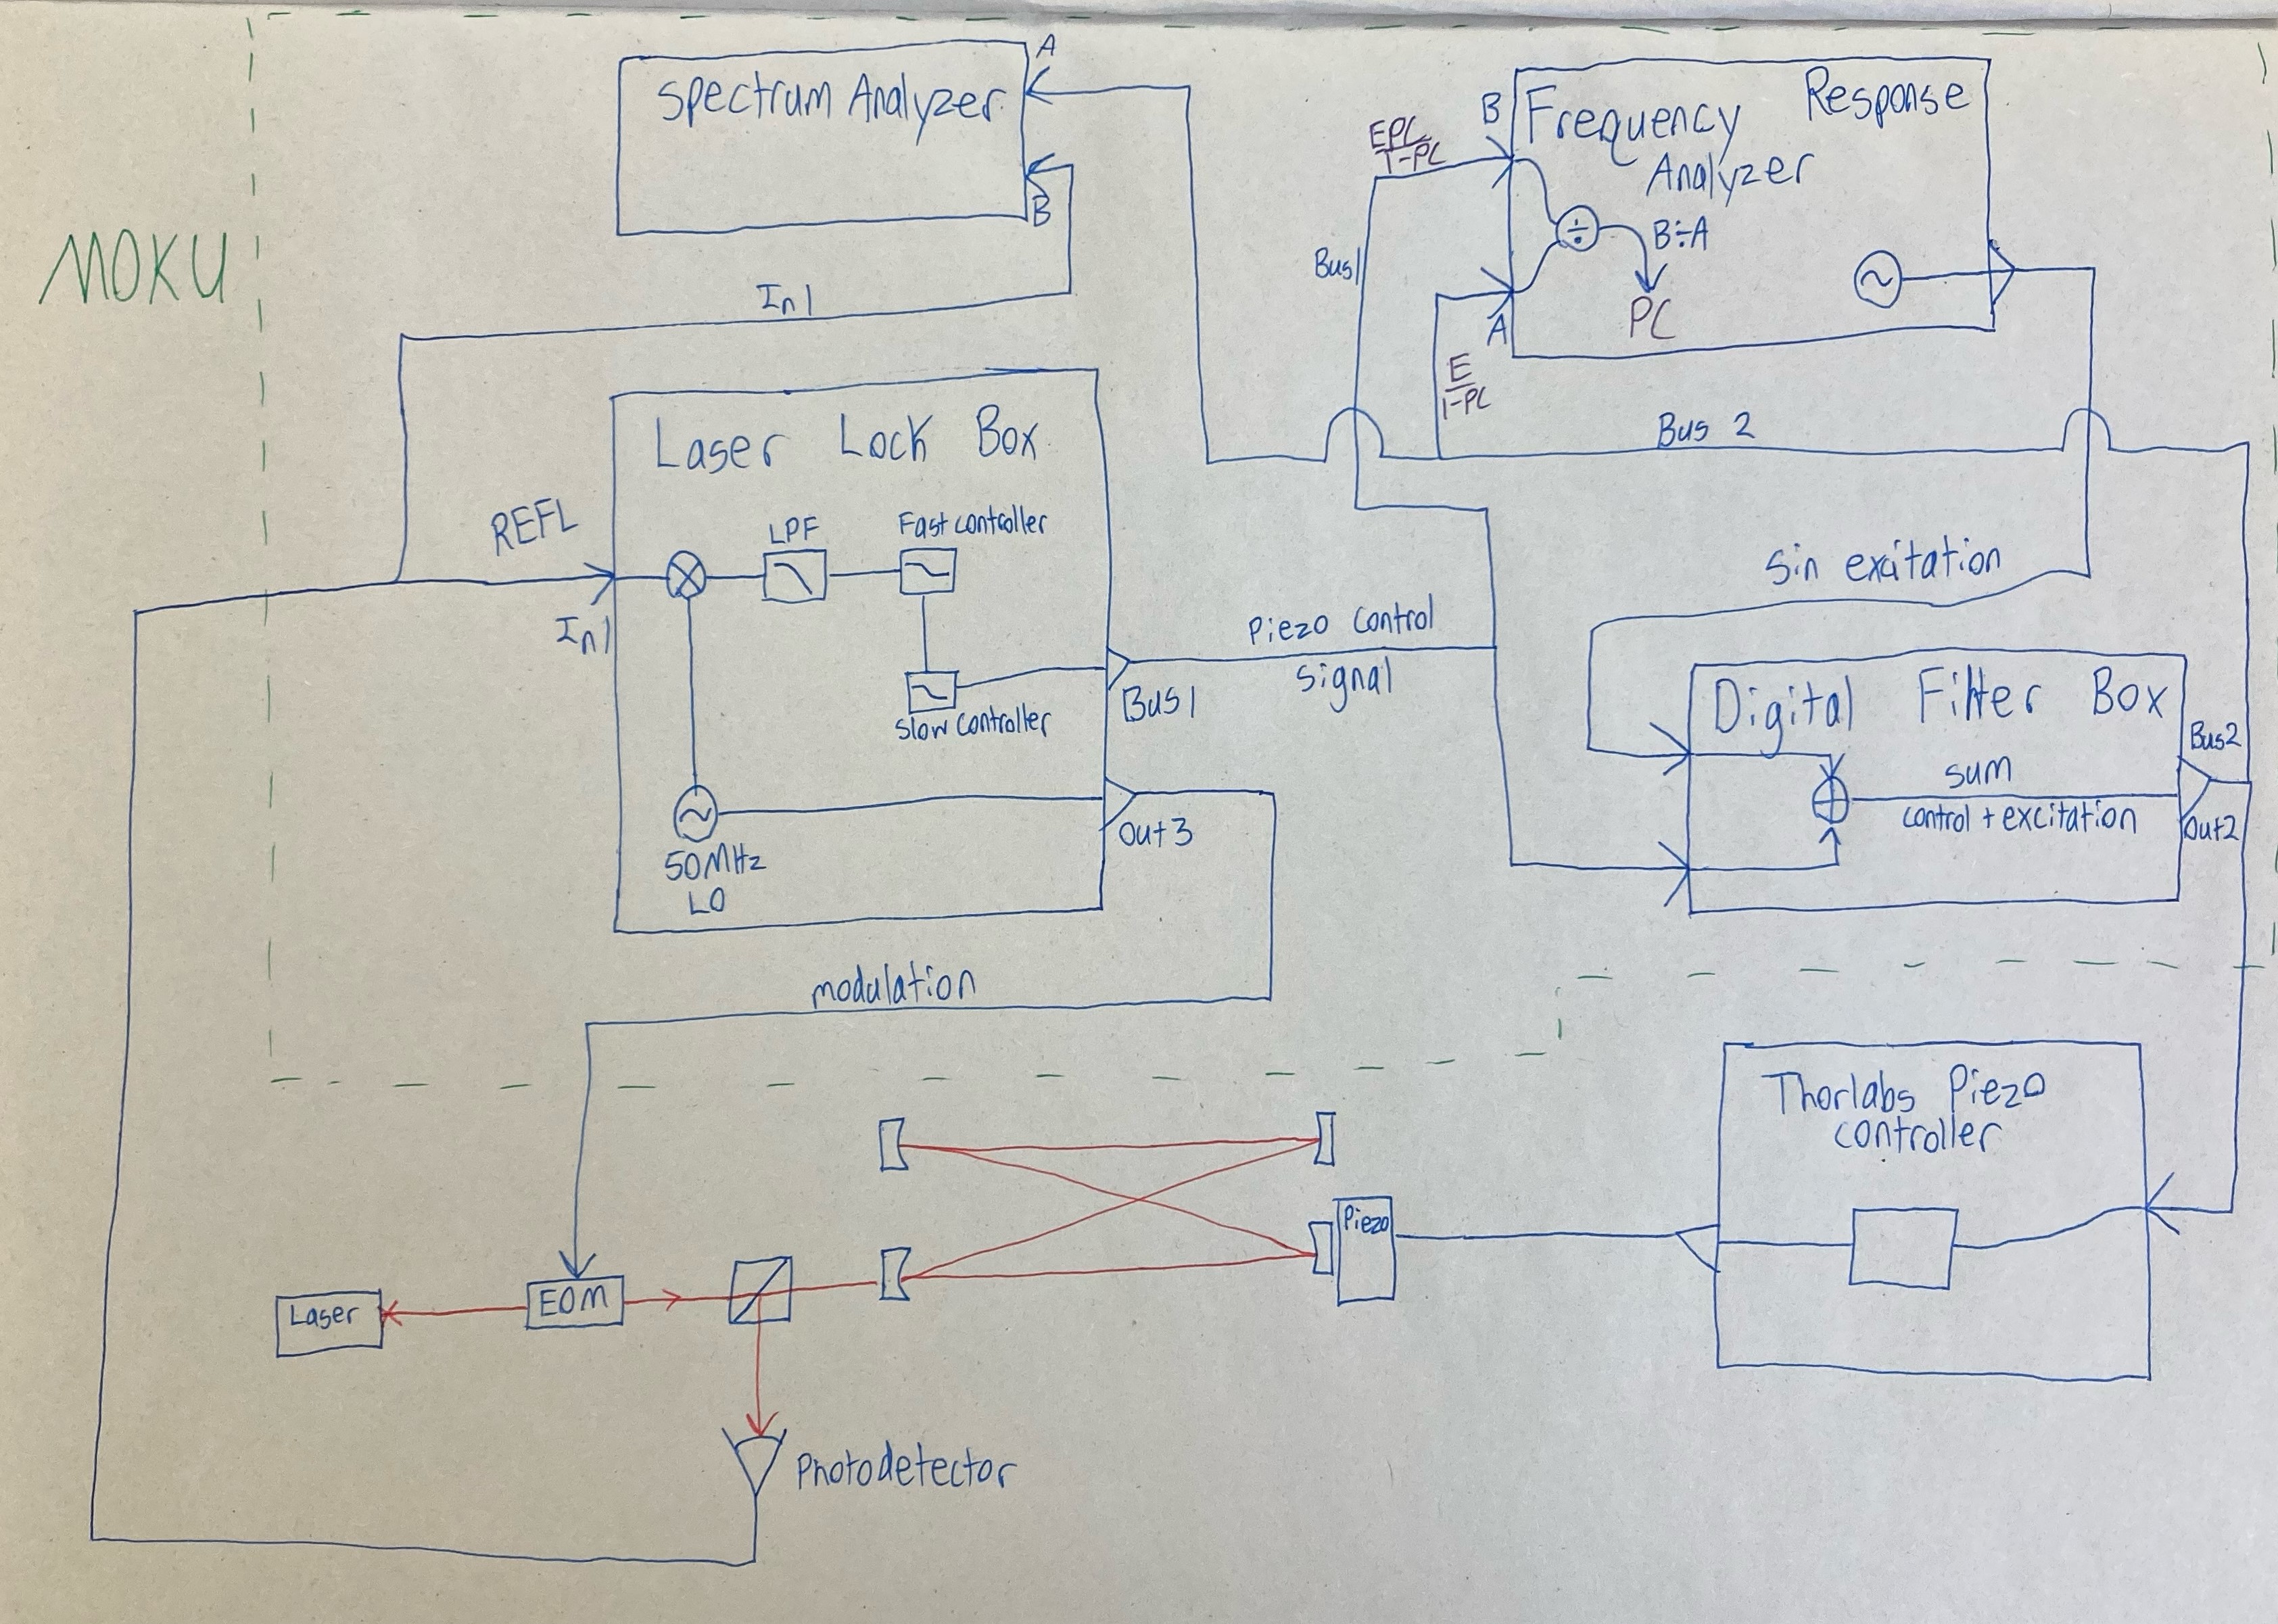 MOKU
Spectrum Analyzer
A
B
In1
Frequency Response
Analyzer
B
A
B÷A
PC
EPC
1-PC
E
1-PC
Bus1
Bus 2
Sin exitation
Laser Lock Box
REFL
In1
LPF
Fast controller
Slow controller
50MHz
LO
Bus1
Out3
Piezo Control
Signal
Digital Filter Box
Sum
control + excitation
Bus2
Out2
modulation
Thorlabs Piezo
controller
Piezo
Laser
EOM
Photodetector